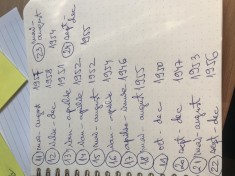 (11) mai - august 1957
(12) iulie - dec 1958
(13) ian - aprilie 1951
(14) ian - aprilie 1952
(15) mai - august 1952
(16) ian - aprilie 1954
(17) aprilie - iunie 1946
(18) mai - august 1955
(19) oct - dec 1950
(20) sept - dec 1947
(21) mai - august 1953
(22) sept - dec 1956
(23) mai - august 1954
(24) sept - dec 1955